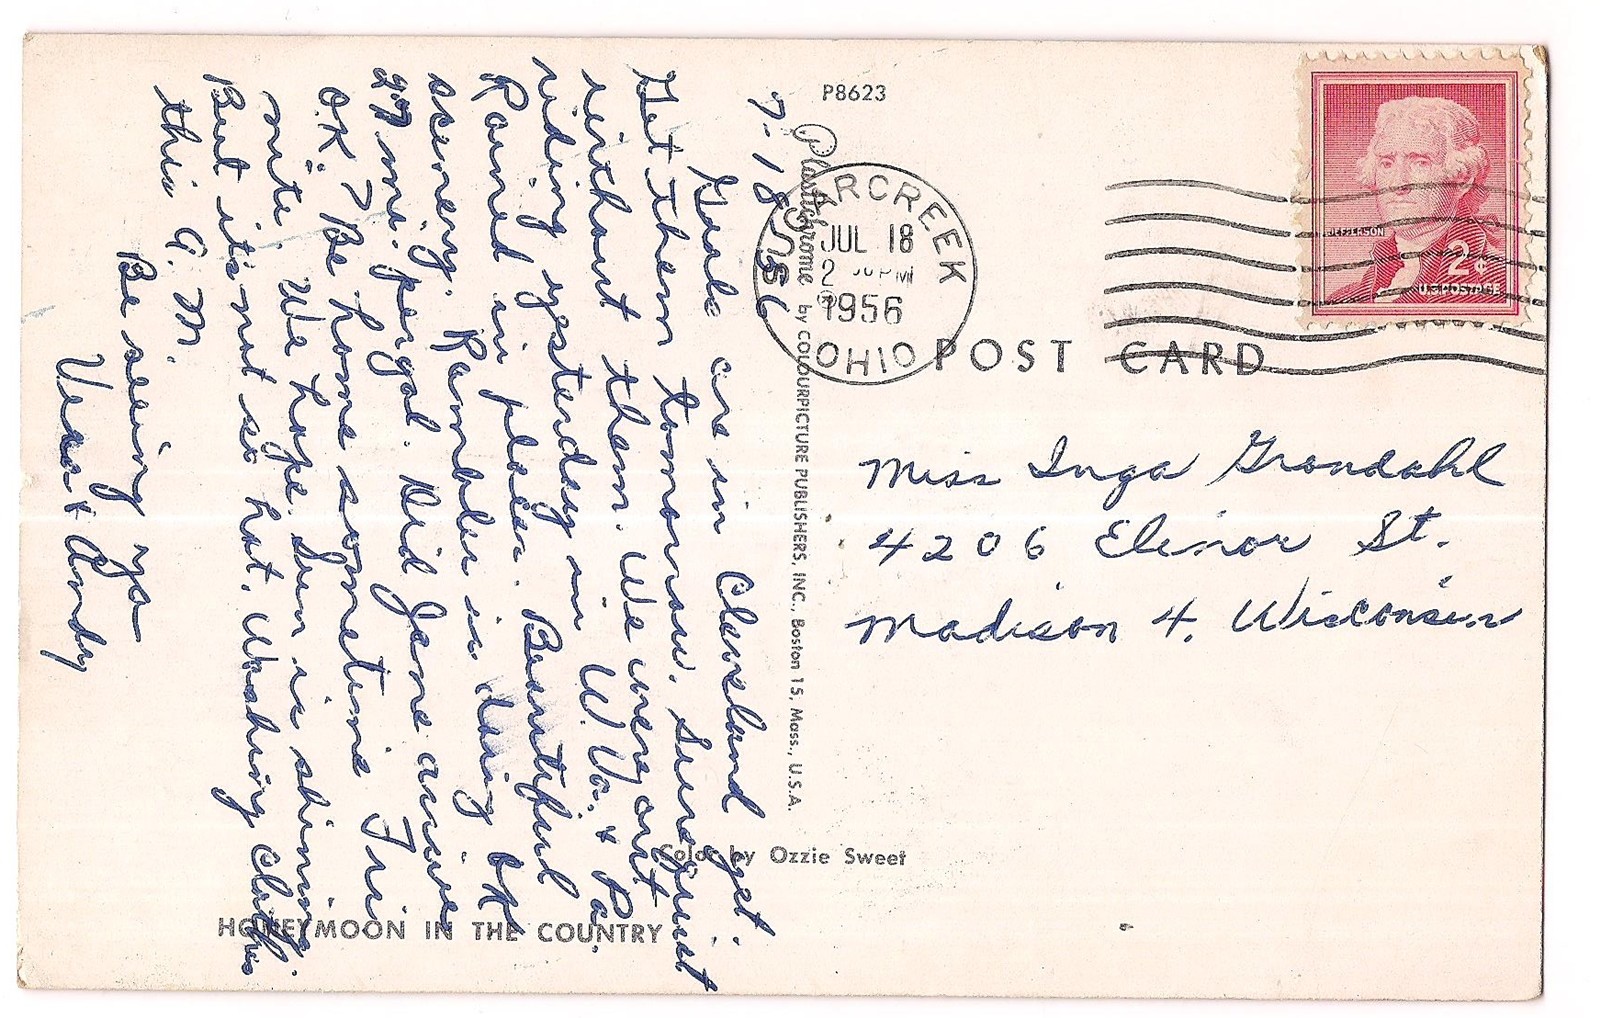 P8623
Plastichrome by COLOURPICTURE PUBLISHERS, INC., Boston 15, Mass., U.S.A.
ARCREEK
JUL 18
2 PM
1956
OHIO
JEFFERSON
2¢
U.S. POSTAGE
POST CARD
7-18-56
Girls are in Cleveland yet.
Get them tomorrow. Sure quiet
without them. We were out
riding yesterday in W. Va. & Pa.
Rained in places. Beautiful
scenery. Rambler is doing OK
27 mi. per gal. Did Jane arrive
O.K.? Be home sometime Fri
nite. We hope. Sun is shining.
But it's not so hot. Washing clothes
this A.M.
Be seeing ya
Vera & Andy
Miss Inga Grondahl
4206 Elinor St.
Madison 4, Wisconsin
Color by Ozzie Sweet
HONEYMOON IN THE COUNTRY